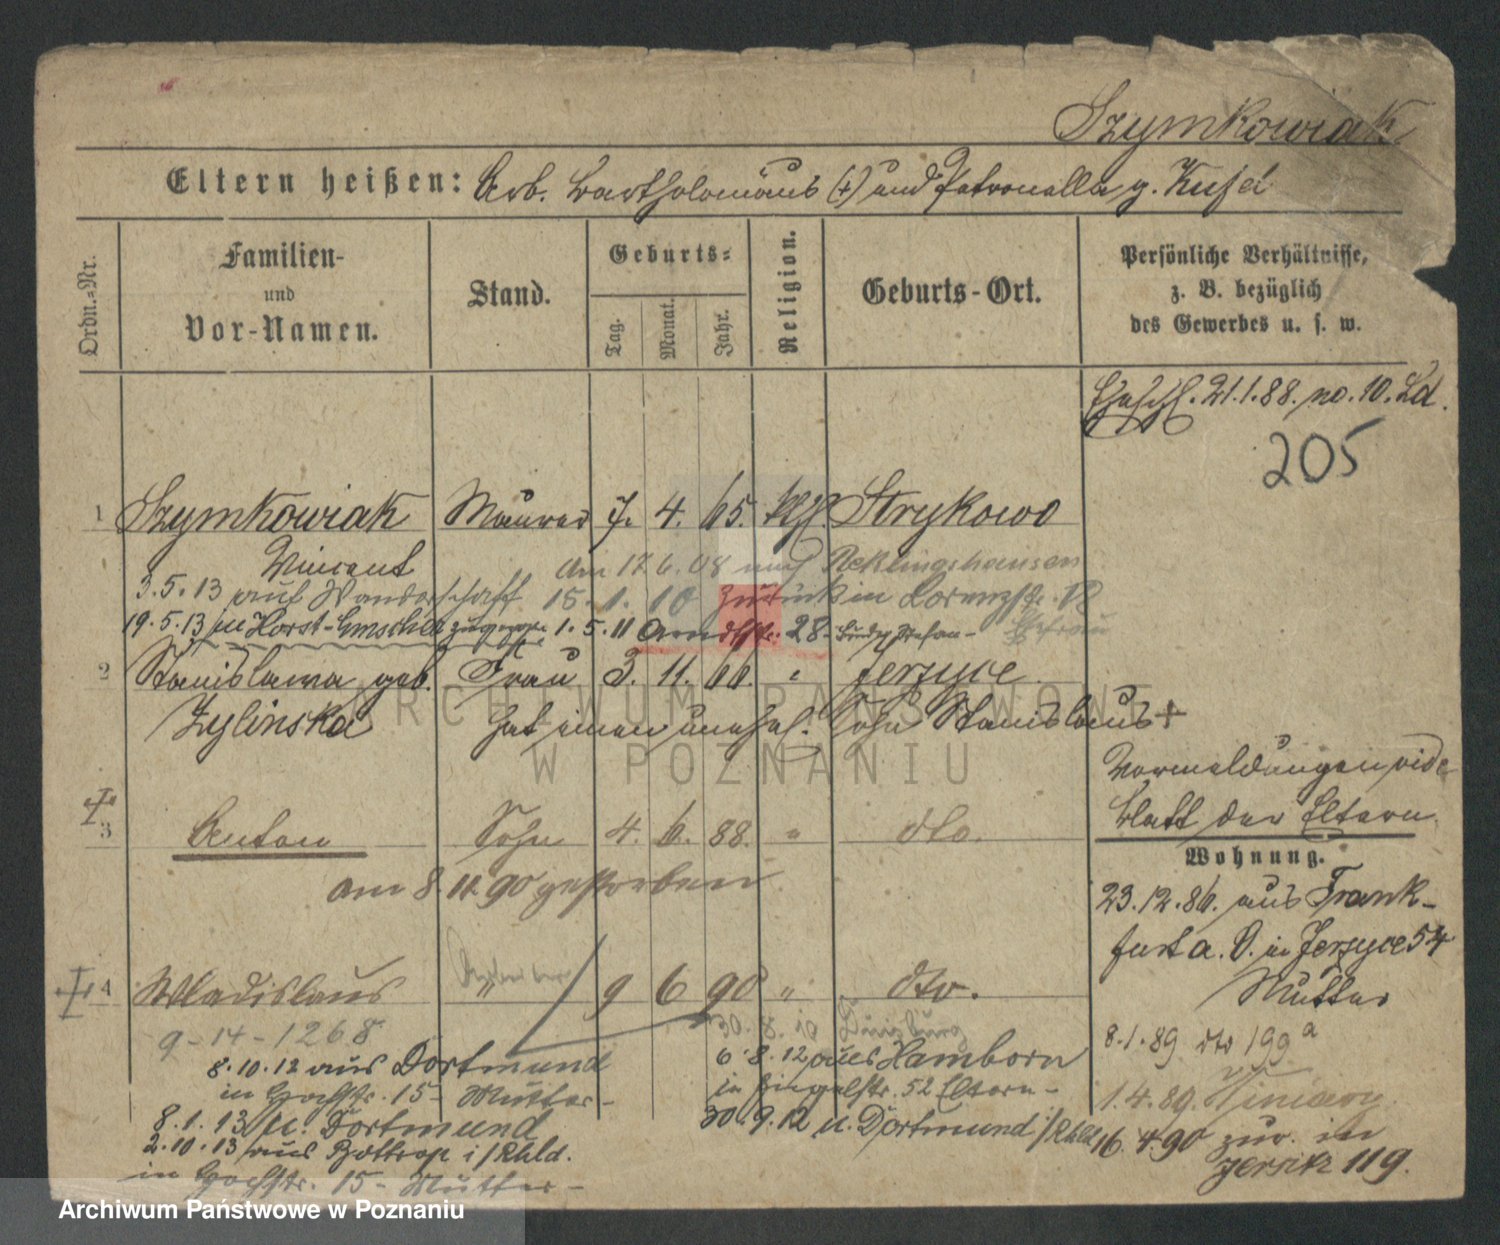 Szymkowiak
Eltern heißen: Arb. Bartholomäus (+) und Petronella g. Kufel
Ordn.-Nr.
Familien-
und
Vor-Namen.
Stand.
Geburts-
Tag.
Monat.
Jahr.
Religion.
Geburts-Ort.
Persönliche Verhältnisse,
z. B. bezüglich
des Gewerbes u. s. w.
Eheschl. 21.1.88. no. 10. Ld.
205
1 Szymkowiak Maurer 7. 4. 65. kth. Strykowo
Vincent am 17 6. 08 nach Recklingshausen
3.5.13 auf Wanderschaft 15.1.10 zurück in Lorenzstr.
19.5.13 in Horst-Emscher 1.5.11 Arndtstr. 28- Ehefrau
2 Stanislawa geb. Frau 3. 11. 66. " Jerzyce
Zylinska hat einen unehel. Sohn Stanislaus +
Vormeldungen vide
Blatt der Eltern
3 Anton Sohn 4. 6. 88. " dto.
am 8.11.90 gestorben
Wohnung.
23.12.86. aus Frank-
furt a. O. in Jerzyce 54
Mutter
4 Wladislaus " 9 6 90 " dto.
9-14-1268
30.8.10 Duisburg
8.1.89 dto 199a
8.10.12 aus Dortmund
6.8.12 aus Hamborn
in Hochstr. 15- Mutter-
in 52 Eltern-
1.4.89.
8.1.13 n. Dortmund
30.9.12 n. Dortmund i/Rhld
16.4.90 zur. in
2.10.13 aus Bottrop i/Rhld.
Jersitz 119.
in Hochstr. 15- Mutter-
ARCHIWUM PAŃSTWOWE
W POZNANIU
Archiwum Państwowe w Poznaniu